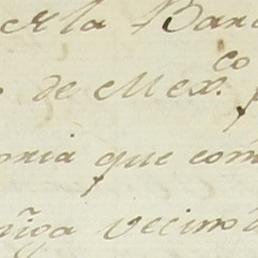 de la Ban
de Mex.co
onia que com
ñiga vecino